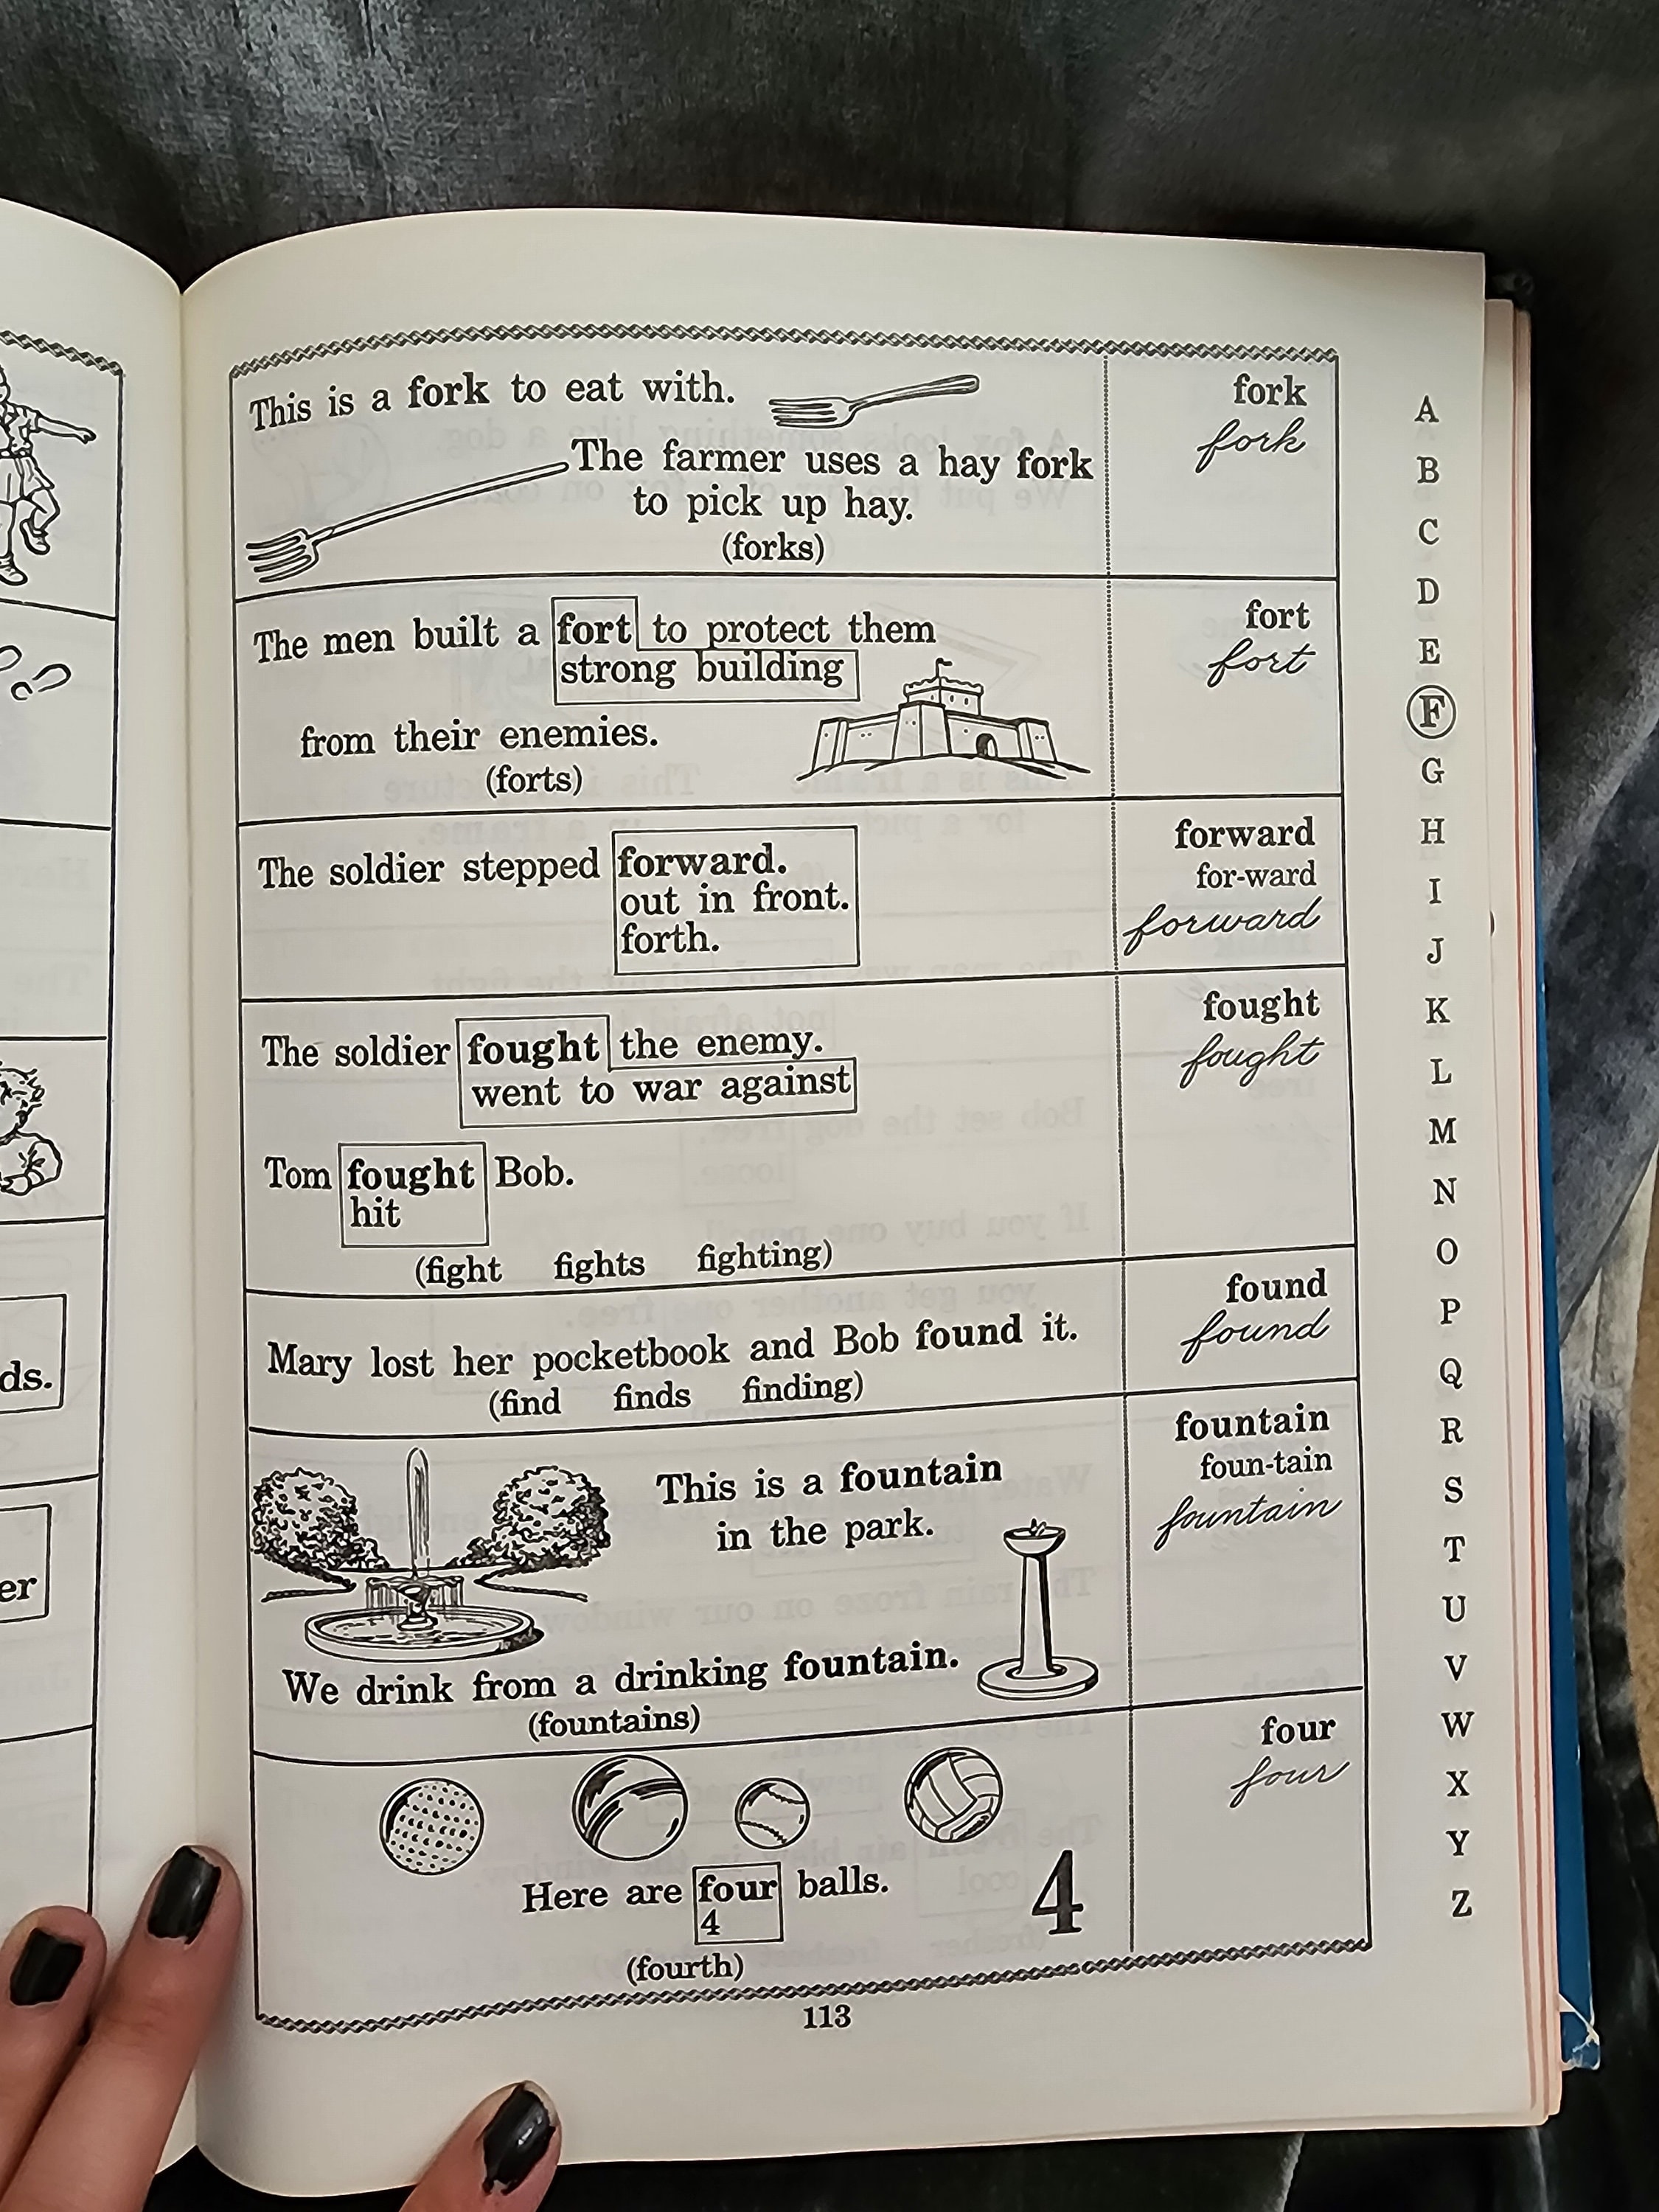 This is a fork to eat with.
The farmer uses a hay fork
to pick up hay.
(forks)
fork
fork
The men built a fort to protect them
strong building
from their enemies.
(forts)
fort
fort
The soldier stepped forward.
out in front.
forth.
forward
for-ward
forward
The soldier fought the enemy.
went to war against
Tom fought Bob.
hit
(fight fights fighting)
fought
fought
Mary lost her pocketbook and Bob found it.
(find finds finding)
found
found
This is a fountain
in the park.
We drink from a drinking fountain.
(fountains)
fountain
foun-tain
fountain
Here are four balls.
4
4
(fourth)
four
four
113
A
B
C
D
E
F
G
H
I
J
K
L
M
N
O
P
Q
R
S
T
U
V
W
X
Y
Z
ds.
er